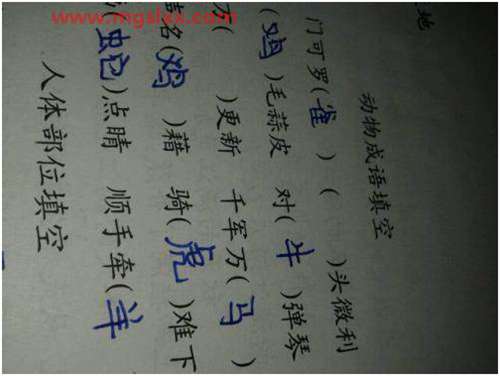 www.mgslxx.com
地
动物成语填空
门可罗(雀) ( )头微利
(鸡)毛蒜皮 对(牛)弹琴
万( )更新 千军万(马)
名(鸡)藉 骑(虎)难下
(蛇)点睛 顺手牵(羊)
人体部位填空